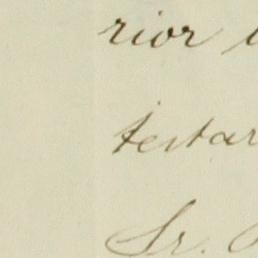 rior
testar
Sr.